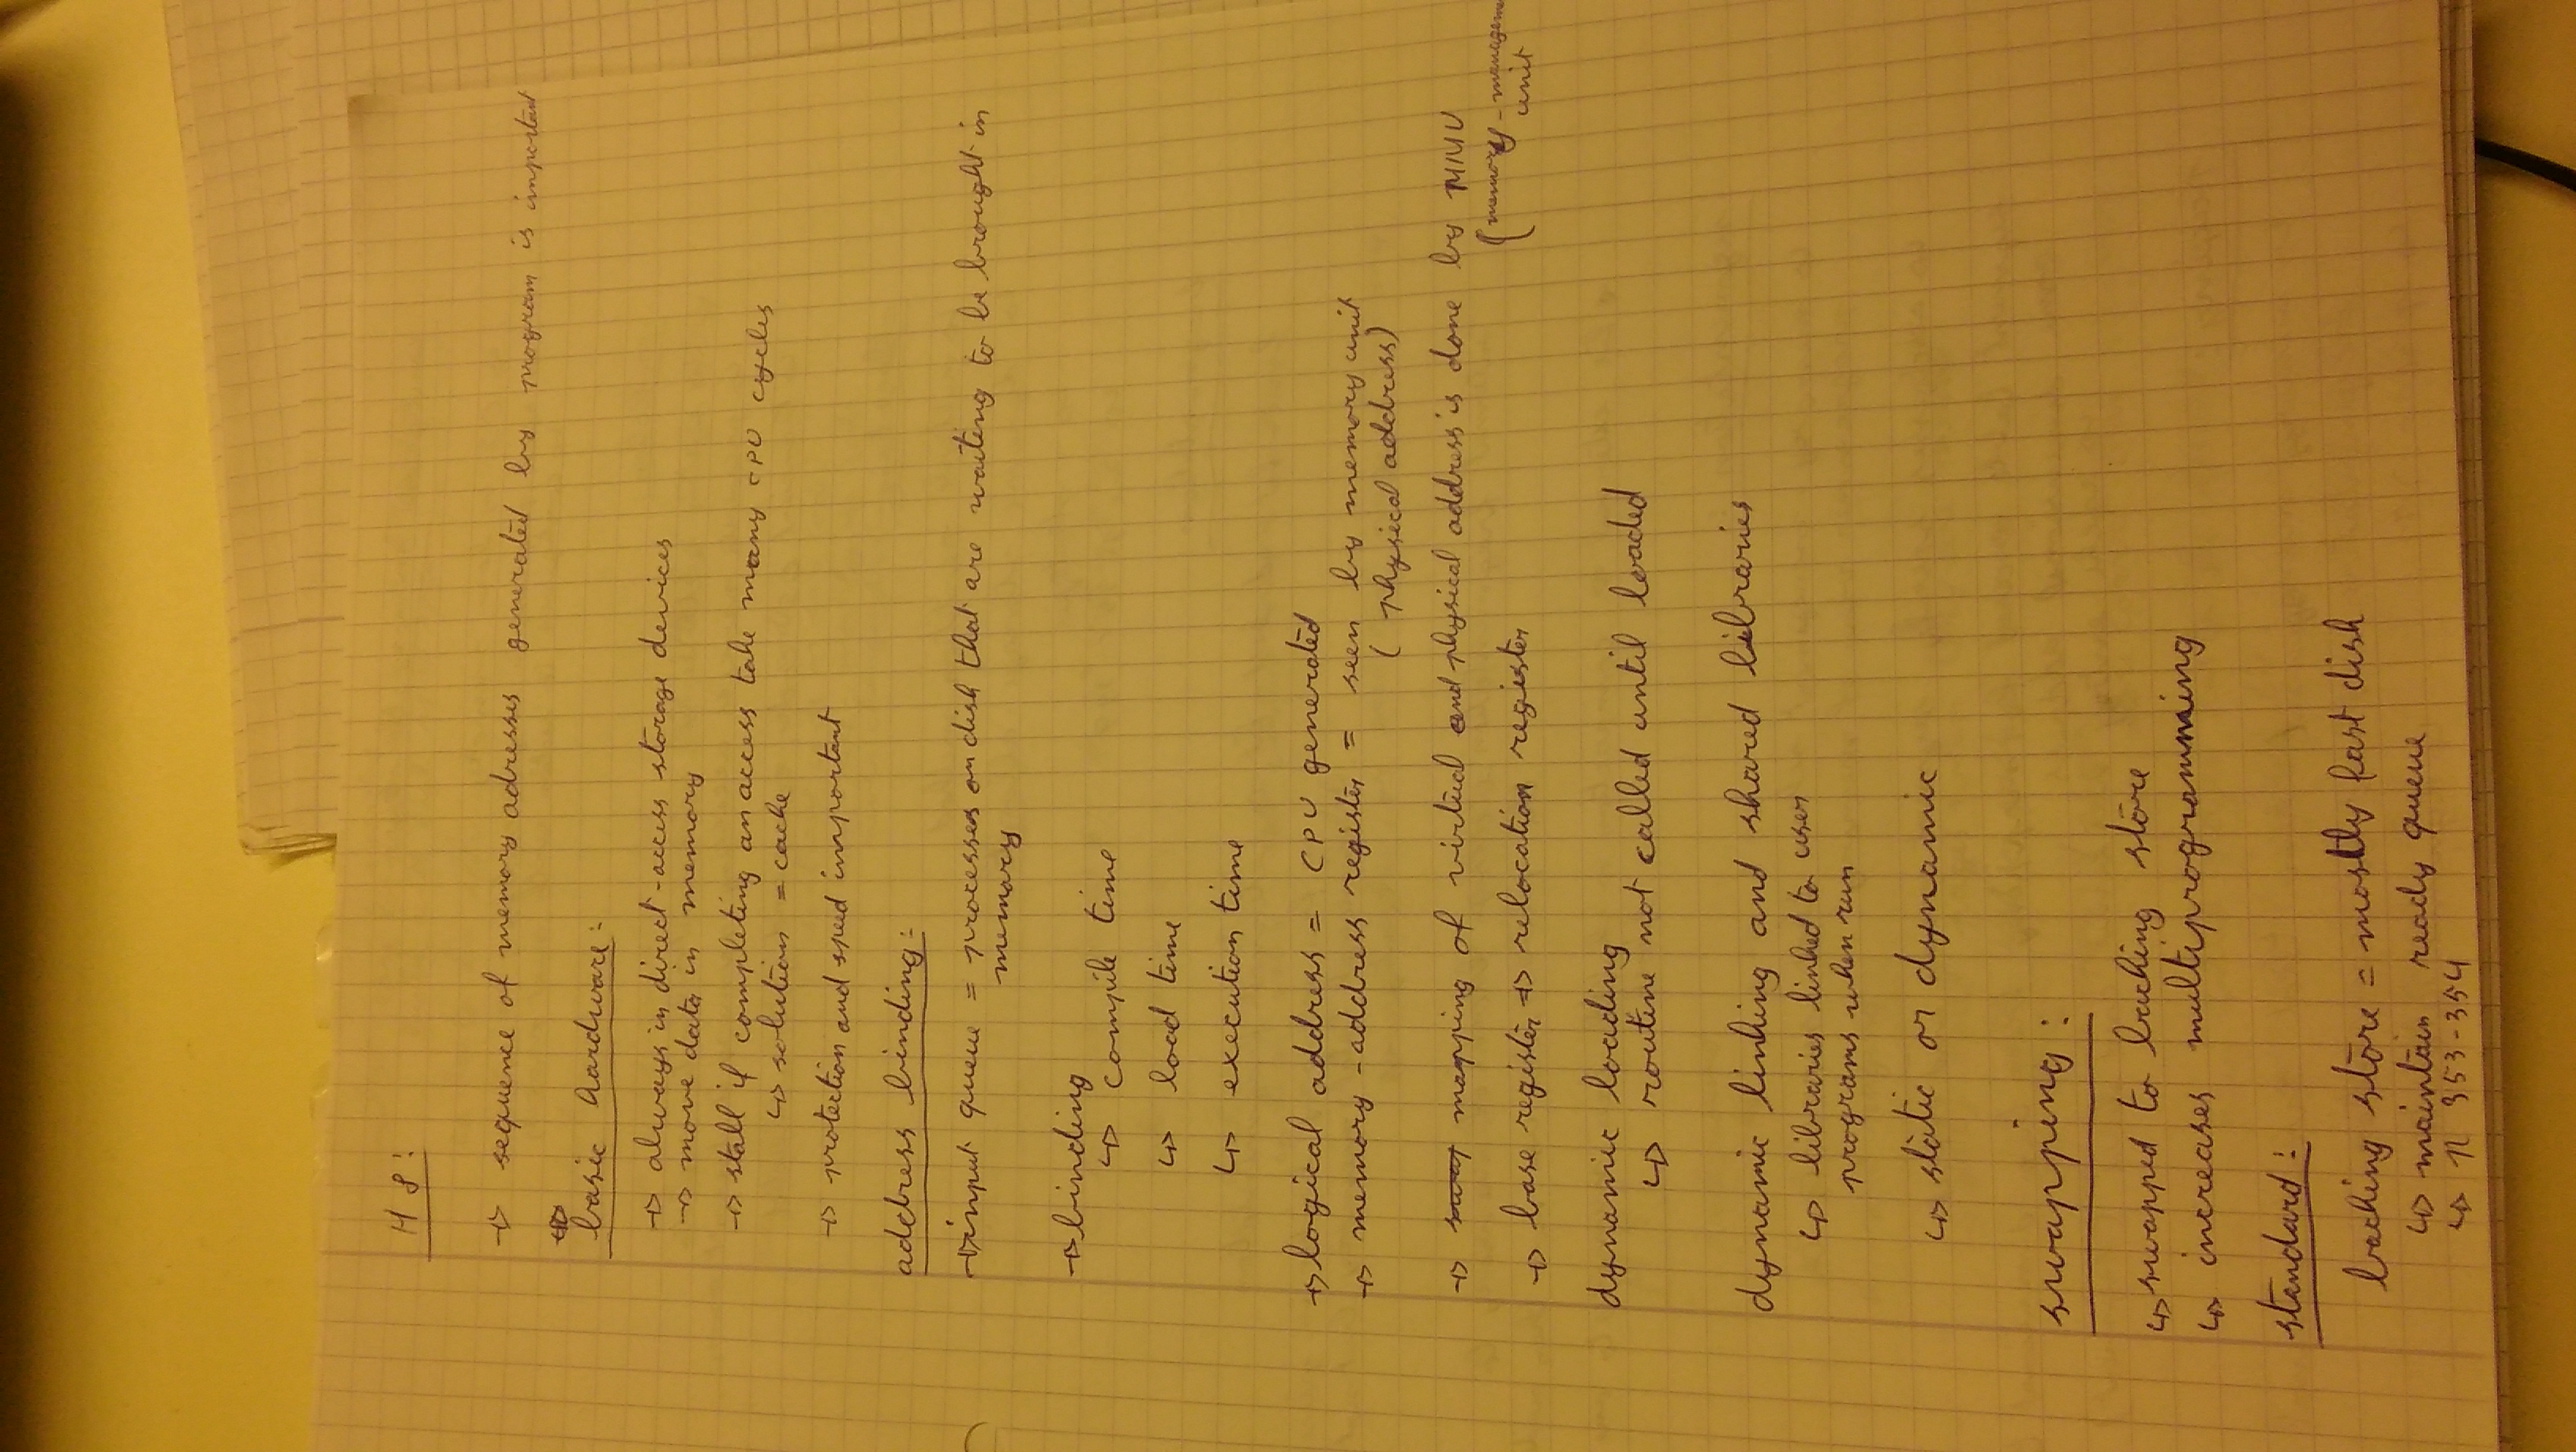 H 8:
→ sequence of memory adresses generated by program is important
basic hardware:
→ always in direct-access storage devices
→ move data in memory
→ stall if completing an access take many CPU cycles
↳ solution = cache
→ protection and speed important
address binding:
→ input queue = processes on disk that are waiting to be brought in
memory
→ binding
↳ compile time
↳ load time
↳ execution time
→ logical address = CPU generated
→ memory-address register = seen by memory unit
(physical address)
→ swap mapping of virtual and physical address is done by MMU
(memory-management
unit
→ base register => relocation register
dynamic loading
↳ routine not called until loaded
dynamic linking and shared libraries
↳ libraries linked to user
programs when run
↳ static or dynamic
swapping:
↳ swapped to backing store
↳ increases multiprogramming
standard:
backing store = mostly fast disk
↳ maintain ready queue
↳ p 353-354